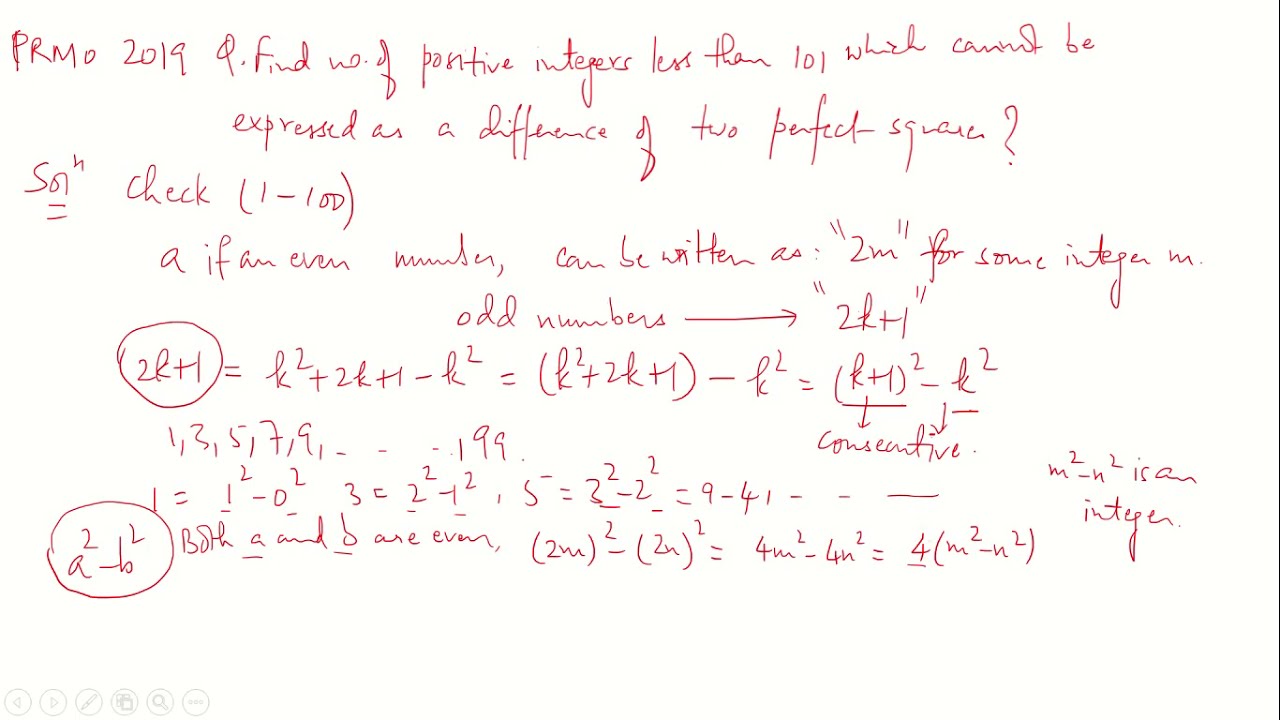 PRMO 2019 Q. Find no. of positive integers less than 101 which cannot be
expressed as a difference of two perfect square?
Solⁿ Check (1-100)
a if an even number, can be written as: "2m" for some integer m.
odd numbers ⟶ "2k+1"
2k+1 = k²+2k+1-k² = (k²+2k+1) - k² = (k+1)² - k²
consecutive.
1, 3, 5, 7, 9, - - - , 99.
1 = 1²-0² 3 = 2²-1², 5 = 3²-2² = 9-4, - - —
m²-n² is an
integer.
a²-b² Both a and b are even, (2m)²-(2n)² = 4m²-4n² = 4(m²-n²)